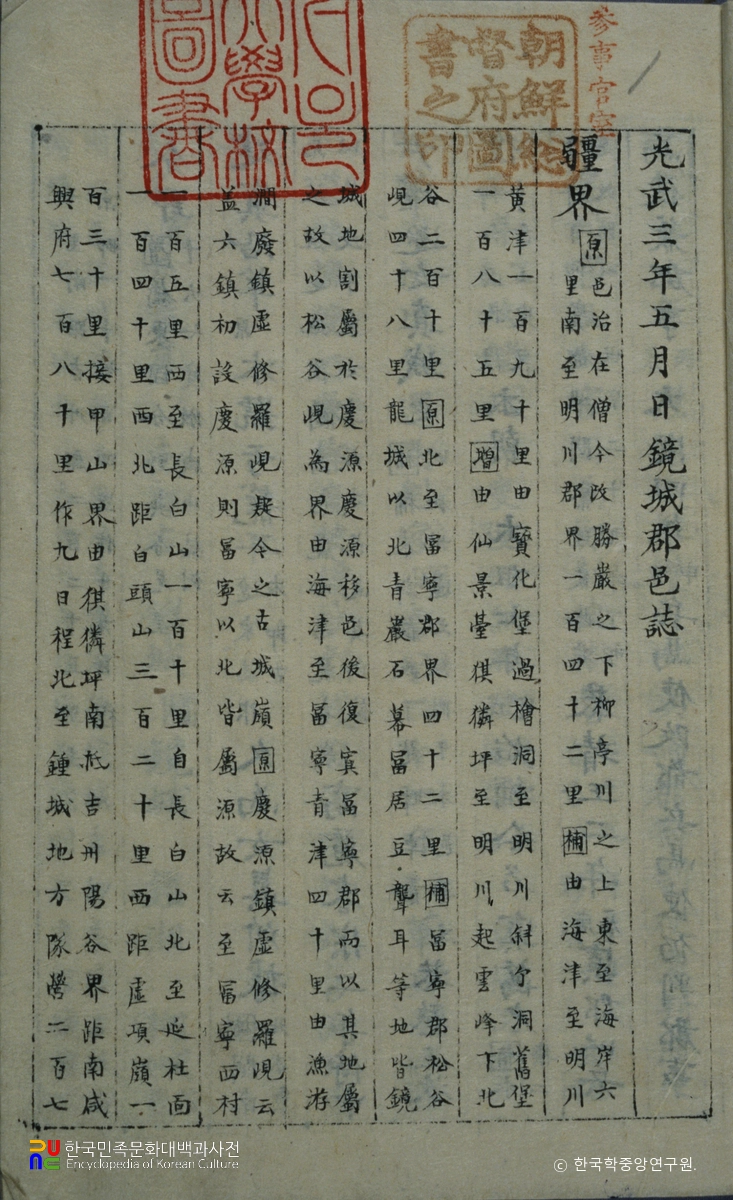 參事官室
朝鮮總
督府圖
書之印
大學校
圖書
光武三年五月日鏡城郡邑誌
疆界
原邑治在僧今改勝巖之下柳亭川之上東至海岸六
里南至明川郡界一百四十二里補由海津至明川
黃津一百九十里由寶化堡過檜洞至明川斜个洞舊堡
一百八十五里增由仙景臺猉獜坪至明川起雲峰下北
谷二百十里原北至冨寧郡界四十二里補冨寧郡松谷
峴四十八里龍城以北青巖石幕冨居豆聾耳等地皆鏡
城地割屬於慶源慶源移邑後復寘冨寧郡而以其地屬
之故以松谷峴為界由海津至冨寧青津四十里由漁游
澗廢鎮虛修羅峴疑今之古城嶺原慶源鎮虛修羅峴云
盖六鎮初設慶源則冨寧以北皆屬源故云至冨寧西村
一百五里西至長白山一百十里自長白山北至延社面
一百四十里西北距白頭山三百二十里西距虛項嶺一
百三十里接甲山界由猉獜坪南抵吉州陽谷界距南咸
興府七百八十里作九日程北至鍾城地方隊營二百七
한국민족문화대백과사전
Encyclopedia of Korean Culture
ⓒ 한국학중앙연구원.